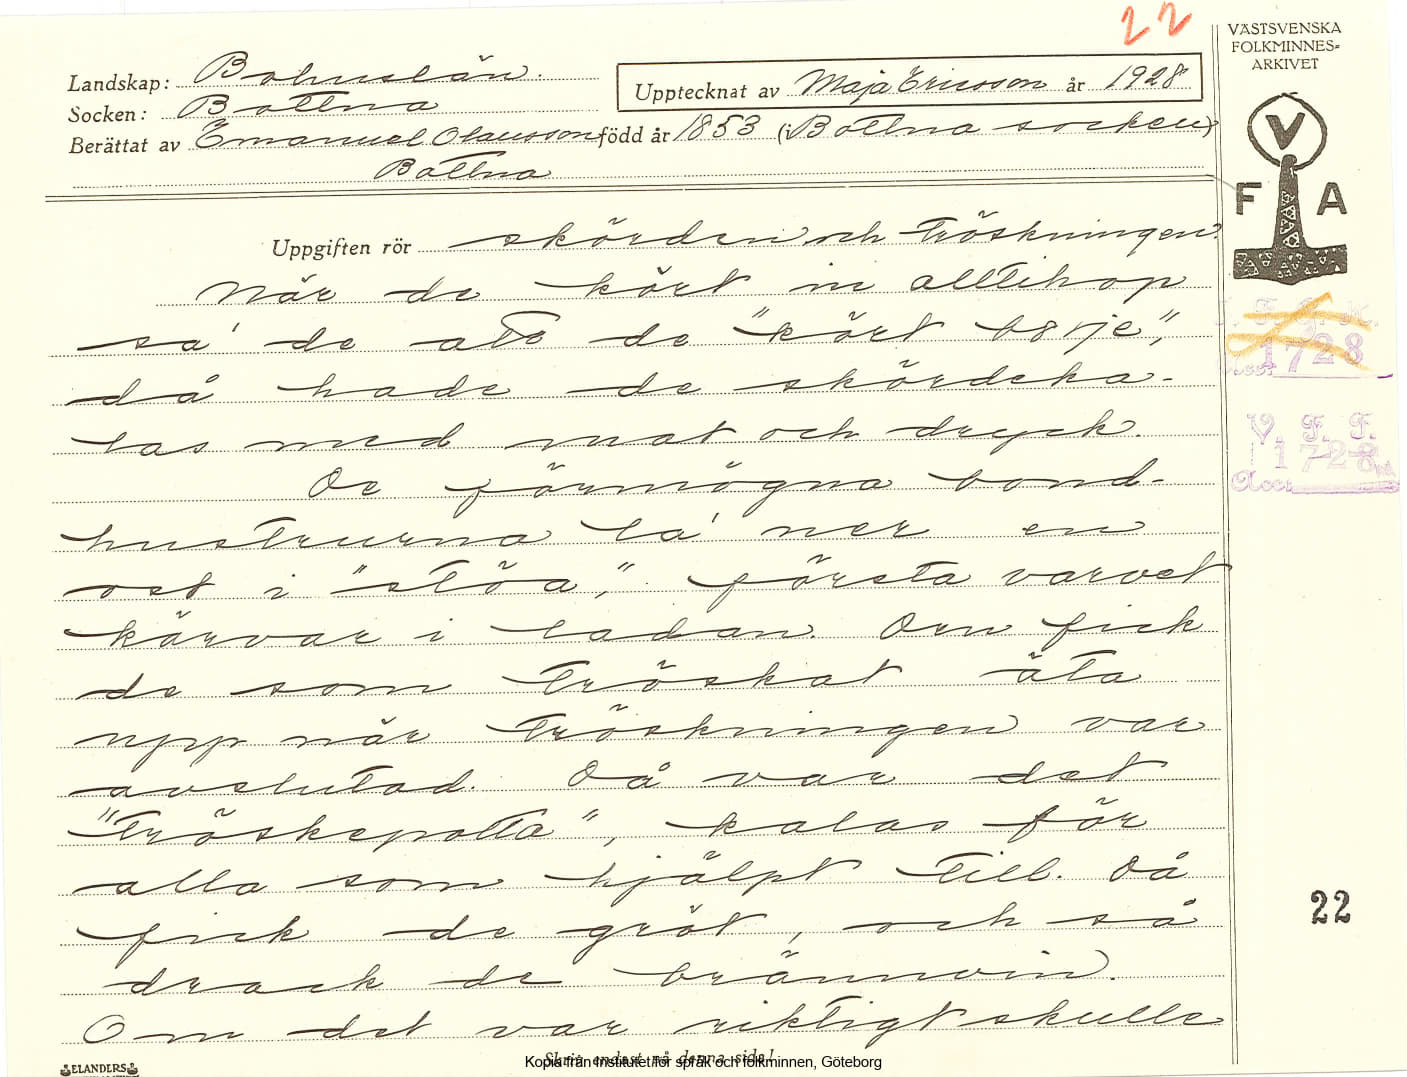 22
VÄSTSVENSKA
FOLKMINNES-
ARKIVET
Landskap: Bohuslän.
Socken: Bottna
Upptecknat av Maja Ericsson år 1928
Berättat av Emanuel Olausson född år 1853 (i Bottna socken)
Bottna
V
F A
Uppgiften rör skörden och tröskningen.
När de kört in alltihop
sa' de att de "kört
då hade de skördeka-
las med mat och dryck.
De förmögna bond-
hustrurna la' ner en
ost i "stöa", första varvet
kärvar i ladan. Den fick
de som tröskat äta
upp när tröskningen var
avslutad. Då var det
"tröskepotta", kalas för
alla som hjälpt till. Då
fick de gröt, och så
drack de brännvin.
Om det var riktigt skulle
1728
V. F. F.
1728
Acc:
22
Skriv endast på denna sida!
Kopia från Institutet för språk och folkminnen, Göteborg
ELANDERS